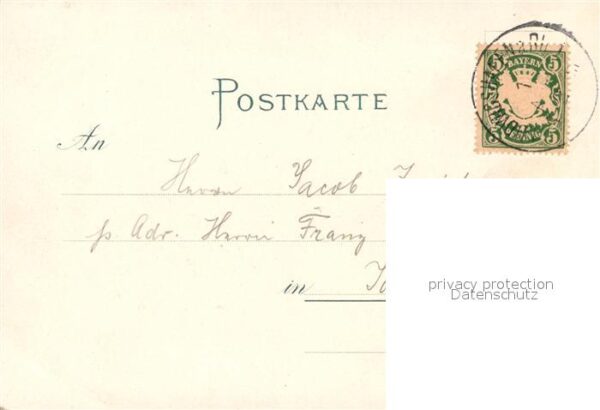 POSTKARTE
5 BAYERN 5
An
Herrn Jacob
p. Adr. Herrn Franz
in
privacy protection
Datenschutz